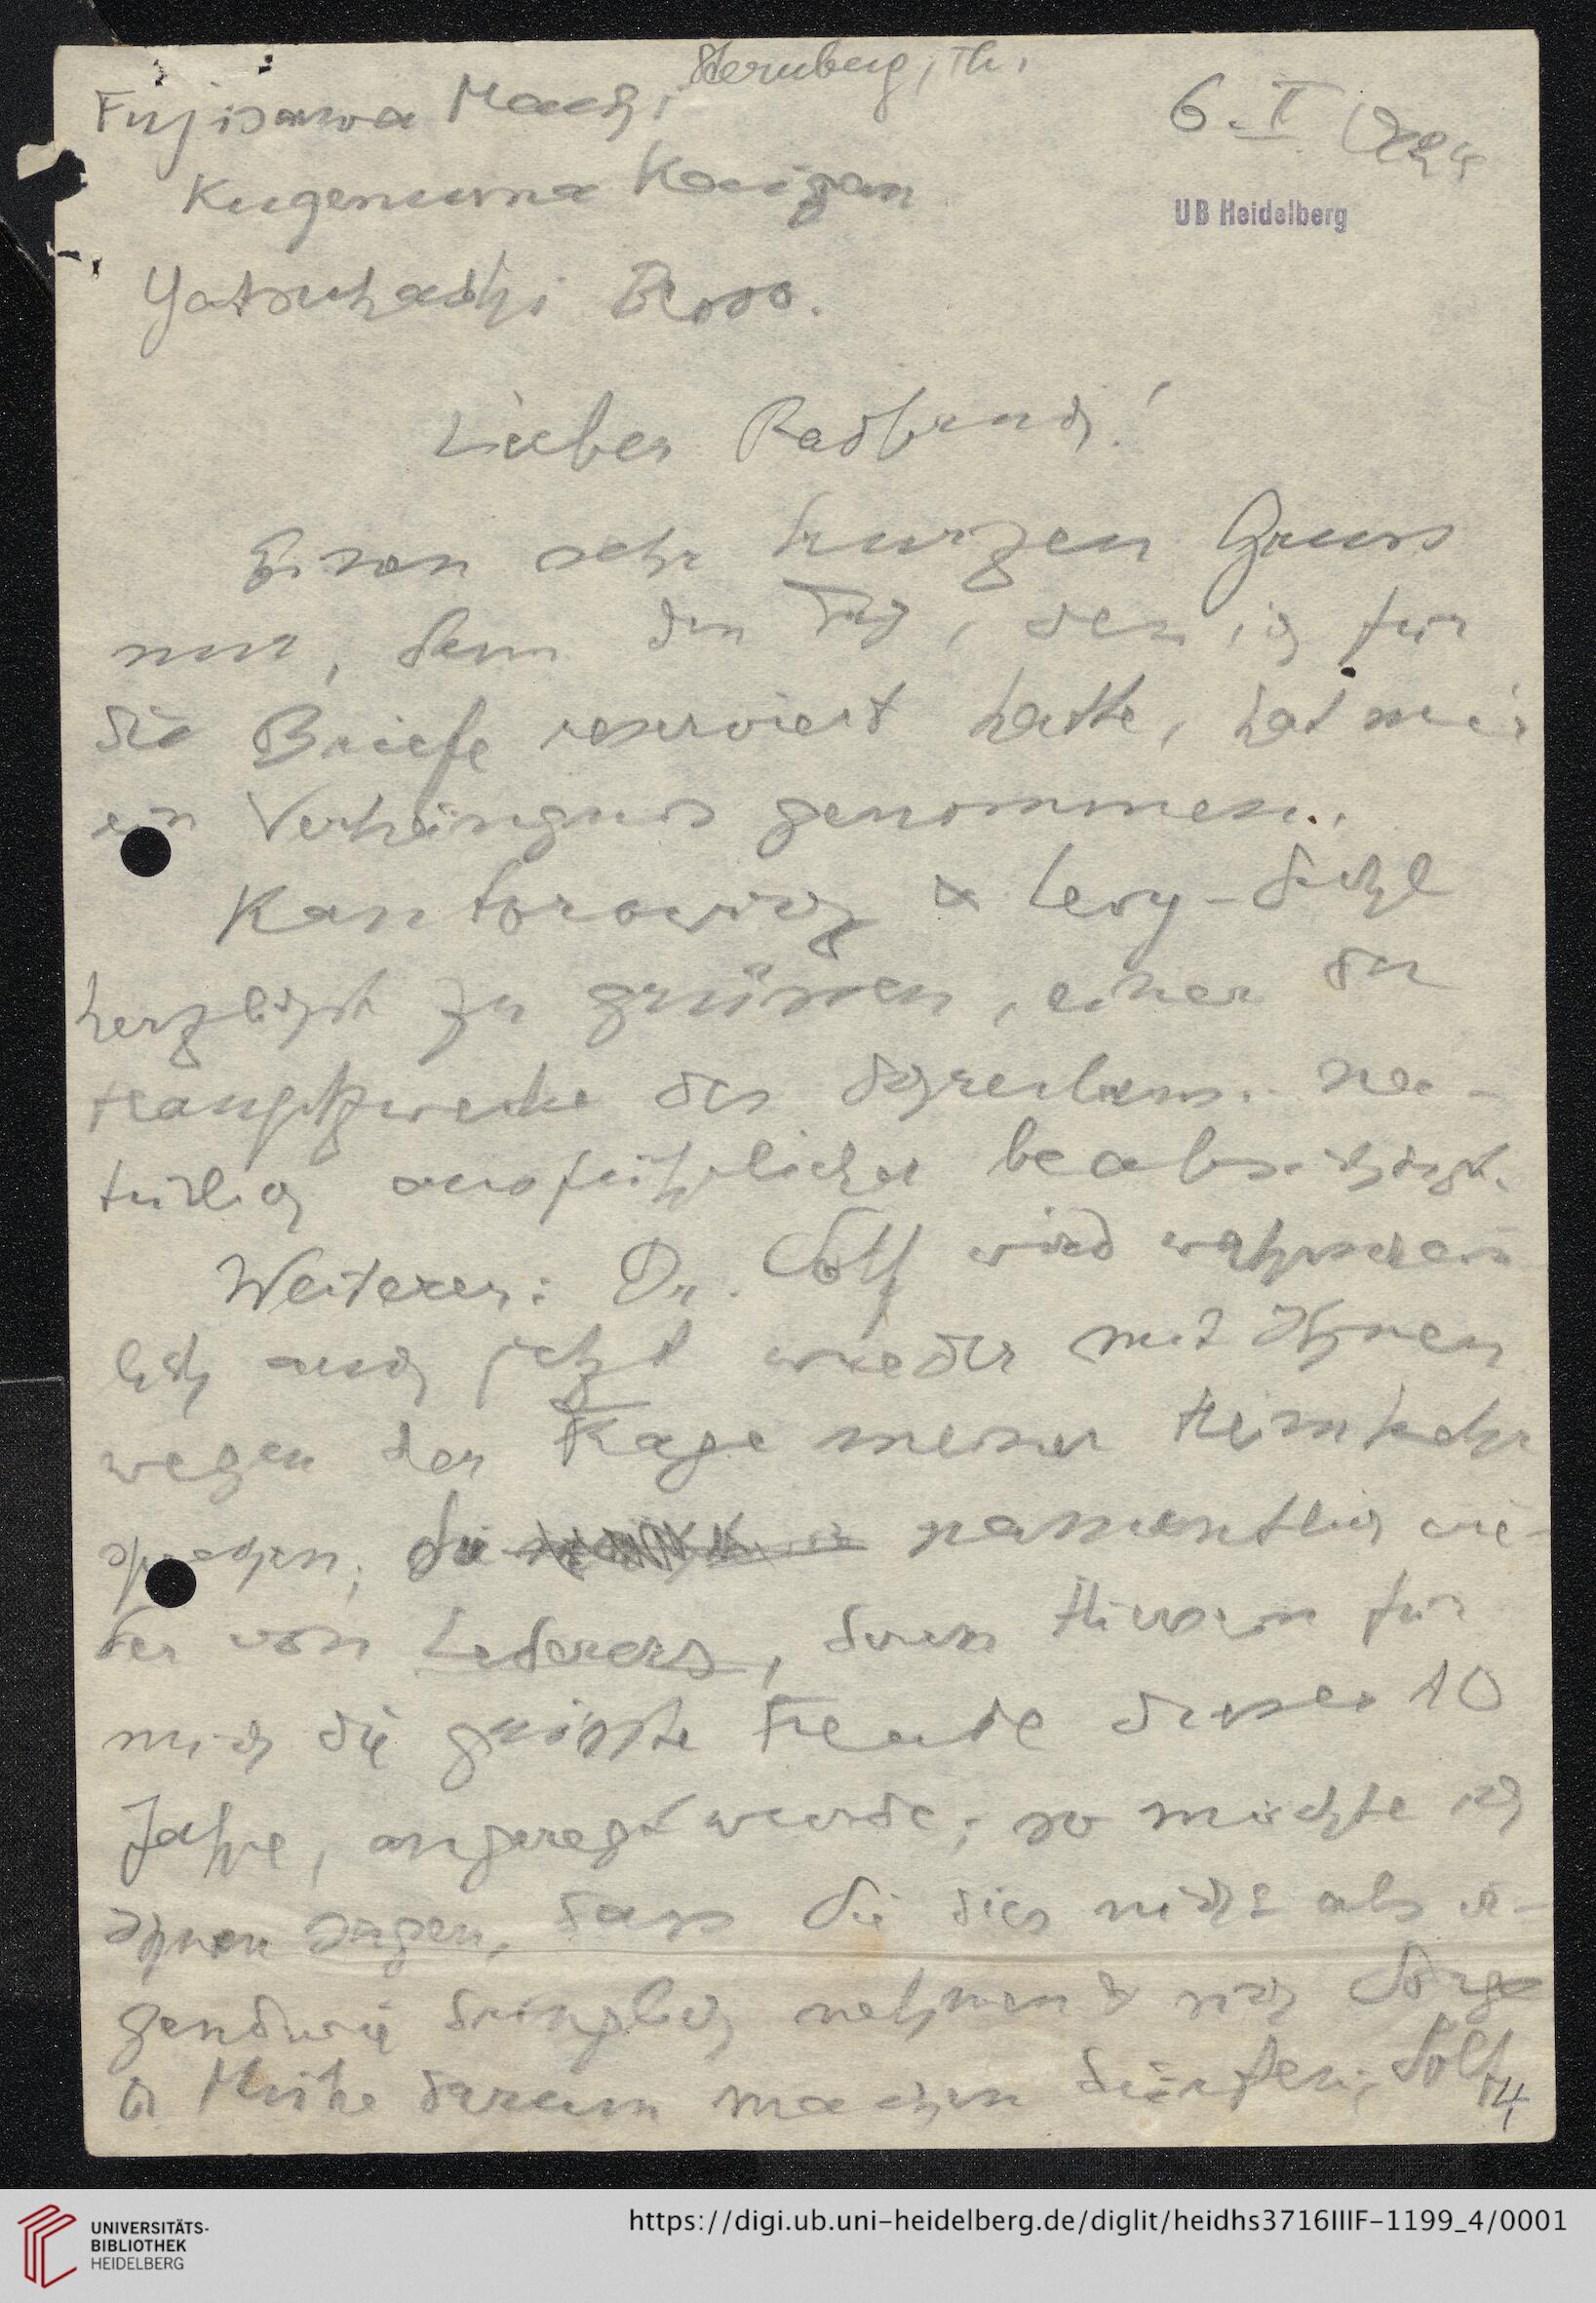 Sternberg, Th.
Fujisawa Machi
6. I
Kugenuma Kaigan
UB Heidelberg
Yatsuhashi Roso.
Lieber Radbruch!
Einen sehr kurzen Gruss
nur, denn den Tag, den ich für
die Briefe reserviert hatte, hat mir
ein Verhängnis genommen.
Kantorowicz & Levy-Suhl
herzlichst zu grüssen, einer der
Hauptzwecke des Schreibens. Na-
türlich ausführlicher beabsichtigt.
Weiteres: Dr. Solf wird wahrschein
lich auch jetzt wieder mit Ihnen
wegen der Frage meiner Heimkehr
sprechen; die namentlich wie-
der von Lederers, deren Hiersein für
mich die grösste Freude dieser 10
Jahre, angeregt wurde; so möchte ich
Ihnen sagen, dass Sie dies nicht als ir-
gendwie dringlich nehmen & sich Sorge
& Mühe darum machen dürfen; Solf
4
UNIVERSITÄTS-
BIBLIOTHEK
HEIDELBERG
https://digi.ub.uni-heidelberg.de/diglit/heidhs3716IIIF-1199_4/0001